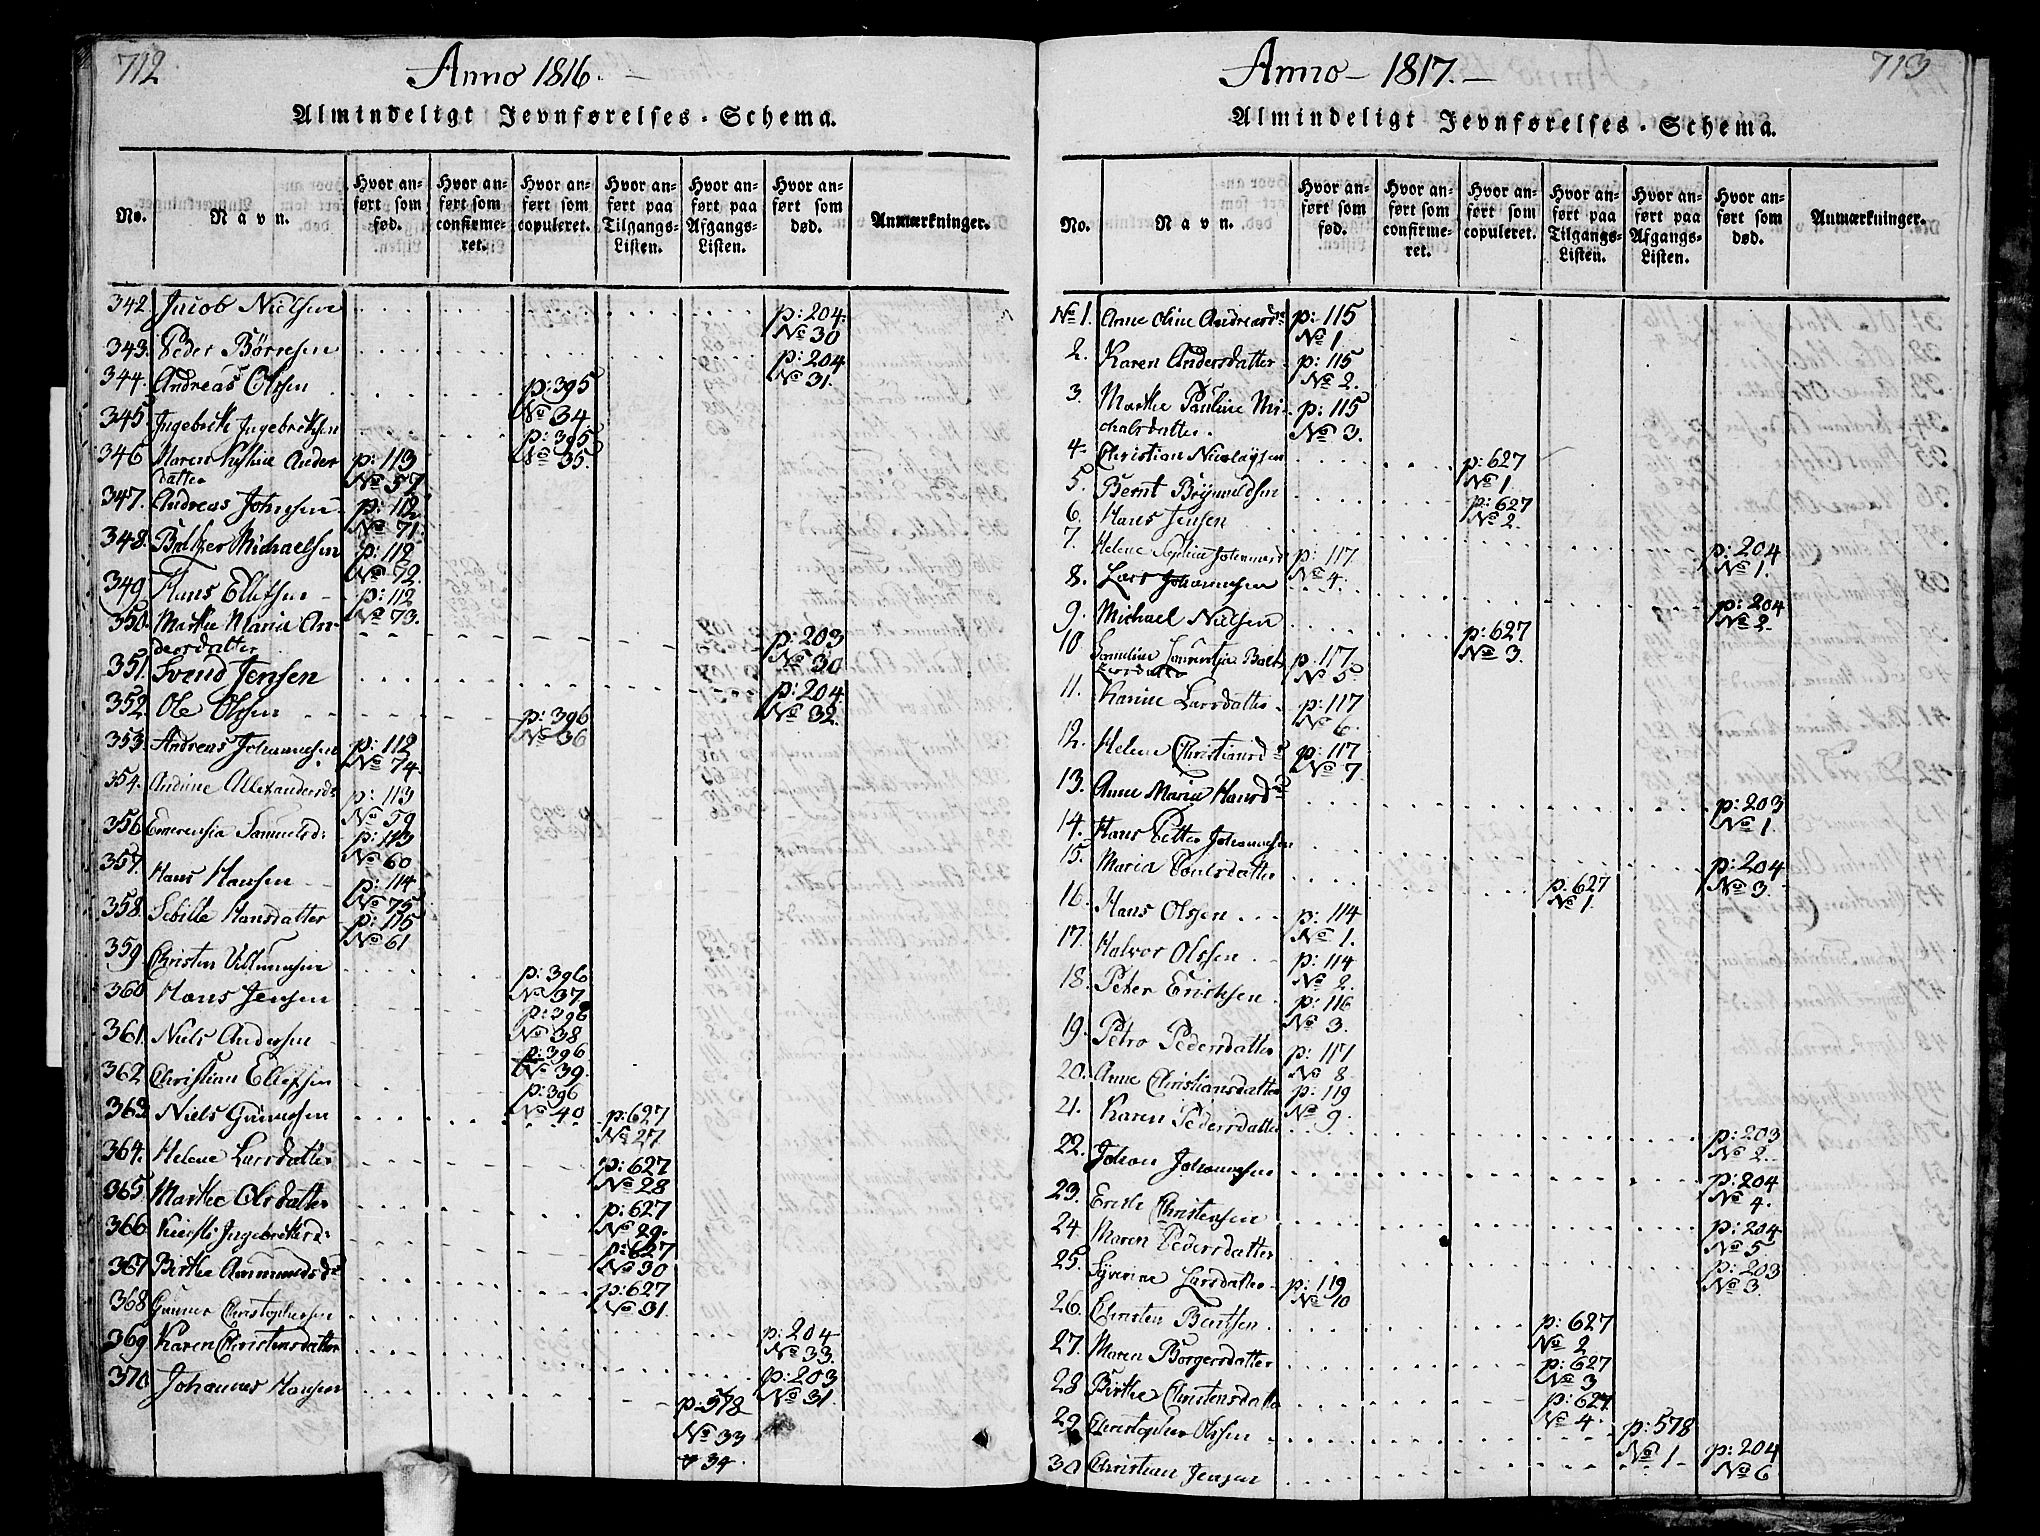 712
Anno 1816.
Almindeligt Jevnførelses-Schema.
No.
Navn.
Hvor an-
ført som
fød.
Hvor an-
ført som
confirme-
ret.
Hvor an-
ført som
copuleret.
Hvor an-
ført paa
Tilgangs-
Listen.
Hvor an-
ført paa
Afgangs-
Listen.
Hvor an-
ført som
død.
Anmærkninger.
342 Jacob Nielsen p: 204.
No 30
343. Peder Börresen p: 204
No 31.
344. Andreas Olssen p: 395
No 34
345. Ingebrith Ingebrithsen p: 395
No 35.
346 Maren Kistine Anders p: 113
datter No 57
347. Andreas Johnsen p: 112
No 71.
348. Baltzer Michaelsen p: 112
No 72.
349. Hans Ellefsen p: 112
No 73.
350. Marthe Maria An- p: 203
dersdatter No 30
351. Svend Jensen p: 204
No 32.
352. Ole Olssen p: 396
No 36
353. Andreas Johannesen p: 112
No 74.
354. Andrine Allexandersd: p: 113
No 59
356 Emerensia Samuelsd: p: 113
No 60
357. Hans Hansen p: 114
No 75
358. Sebille Hansdatter p: 115
No 61
359. Christen Villumsen p: 396
No 37
360 Hans Jensen p: 396
No 38
361. Niels Andersen p: 396
No 39.
362 Christian Ellefsen p: 396
No 40
363. Niels Gunnesen p: 627
No 27
364. Helene Larsdatter p: 627
No 28
365. Marthe Olsdatter p: 627
No 29.
366 Ingebrethsd: p: 627
No 30
367 Birthe Ammundsdr p: 627
No 31.
368 Gunner Christophersen p: 204
No 33.
369 Karen Christensdatter p: 203
No 31.
370 Johannes Hansen p: 578
No 33
& 34.
713
Anno 1817.
Almindeligt Jevnførelses-Schema.
No.
Navn.
Hvor an-
ført som
fød.
Hvor an-
ført som
confirme-
ret.
Hvor an-
ført som
copuleret.
Hvor an-
ført paa
Tilgangs-
Listen.
Hvor an-
ført paa
Afgangs-
Listen.
Hvor an-
ført som
død.
Anmærkninger.
No 1. Anne Oline Andreasdr p: 115
No 1.
2. Karen Andersdatter p: 115
No 2.
3. Marthe Pauline Mi- p: 115
chalsdatter. No 3.
4. Christian Nicolaysen p: 627
No 1
5. Bernt Brynnildsen p: 627
No 2.
6. Hans Jensen p: 204
No 1.
7. Helene Sophia Johannesd p: 117
No 4.
8. Lars Johannesen p: 204
No 2.
9. Michael Nielsen p: 627
No 3.
10 Laurentze Balt p: 117.
zersdatter No 5
11. Karine Larsdatter p: 117
No 6.
12. Helene Christiansdr p: 117
No 7.
13. Anne Maria Hansdr p: 203
No 1.
14. Hans Petter Johannesen p: 204
No 3.
15. Maria Poulsdatter p: 627
No 1.
16. Hans Olsen p: 114
No 1.
17. Halvor Olssen p: 114
No 2.
18. Peter Erichsen p: 116
No 3.
19. Petro Pedersdatter p: 117
No 8
20. Anne Christiansdatter p: 119
No 9.
21. Karen Pedersdatter p: 203
No 2.
22. Johan Johannesen p: 204
No 4.
23. Erich Christensen p: 204
No 5
24. Maren Pedersdatter p: 203
No 3.
25. Syverine Larsdatter p: 119
No 10
26. Christen Bentsen p: 627
No 2
27. Maren Borgersdatter p: 627
No 3
28 Birthe Christensdatter p: 627
No 4.
29 Christopher Olssen p: 578
No 1
30 Christian Jensen p: 204
No 6